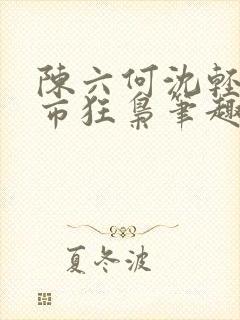 陳六何沈軽
市狂梟筆趣
夏冬波